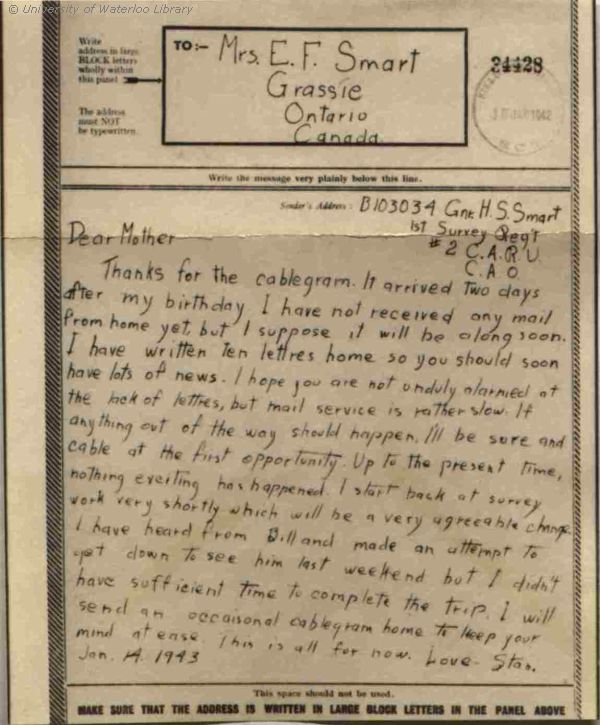 © University of Waterloo Library
Write
address in large
BLOCK letters
wholly within
this panel
The address
must NOT
be typewritten.
TO:-
Mrs. E. F. Smart
Grassie
Ontario
Canada.
24428
Write the message very plainly below this line.
Sender's Address: B103034 Gnr. H. S. Smart
1st Survey Reg't
#2 C.A.R.U.
C.A.O
Dear Mother
Thanks for the cablegram. It arrived two days
after my birthday. I have not received any mail
from home yet, but I suppose it will be along soon.
I have written ten lettres home so you should soon
have lots of news. I hope you are not unduly alarmed at
the lack of lettres, but mail service is rather slow. If
anything out of the way should happen, I'll be sure and
cable at the first opportunity. Up to the present time,
nothing exciting has happened. I start back at survey
work very shortly which will be a very agreeable change.
I have heard from Bill and made an attempt to
get down to see him last weekend but I didn't
have sufficient time to complete the trip. I will
send an occaisonal cablegram home to keep your
mind at ease. This is all for now. Love - Stan.
Jan. 14. 1943
This space should not be used.
MAKE SURE THAT THE ADDRESS IS WRITTEN IN LARGE BLOCK LETTERS IN THE PANEL ABOVE